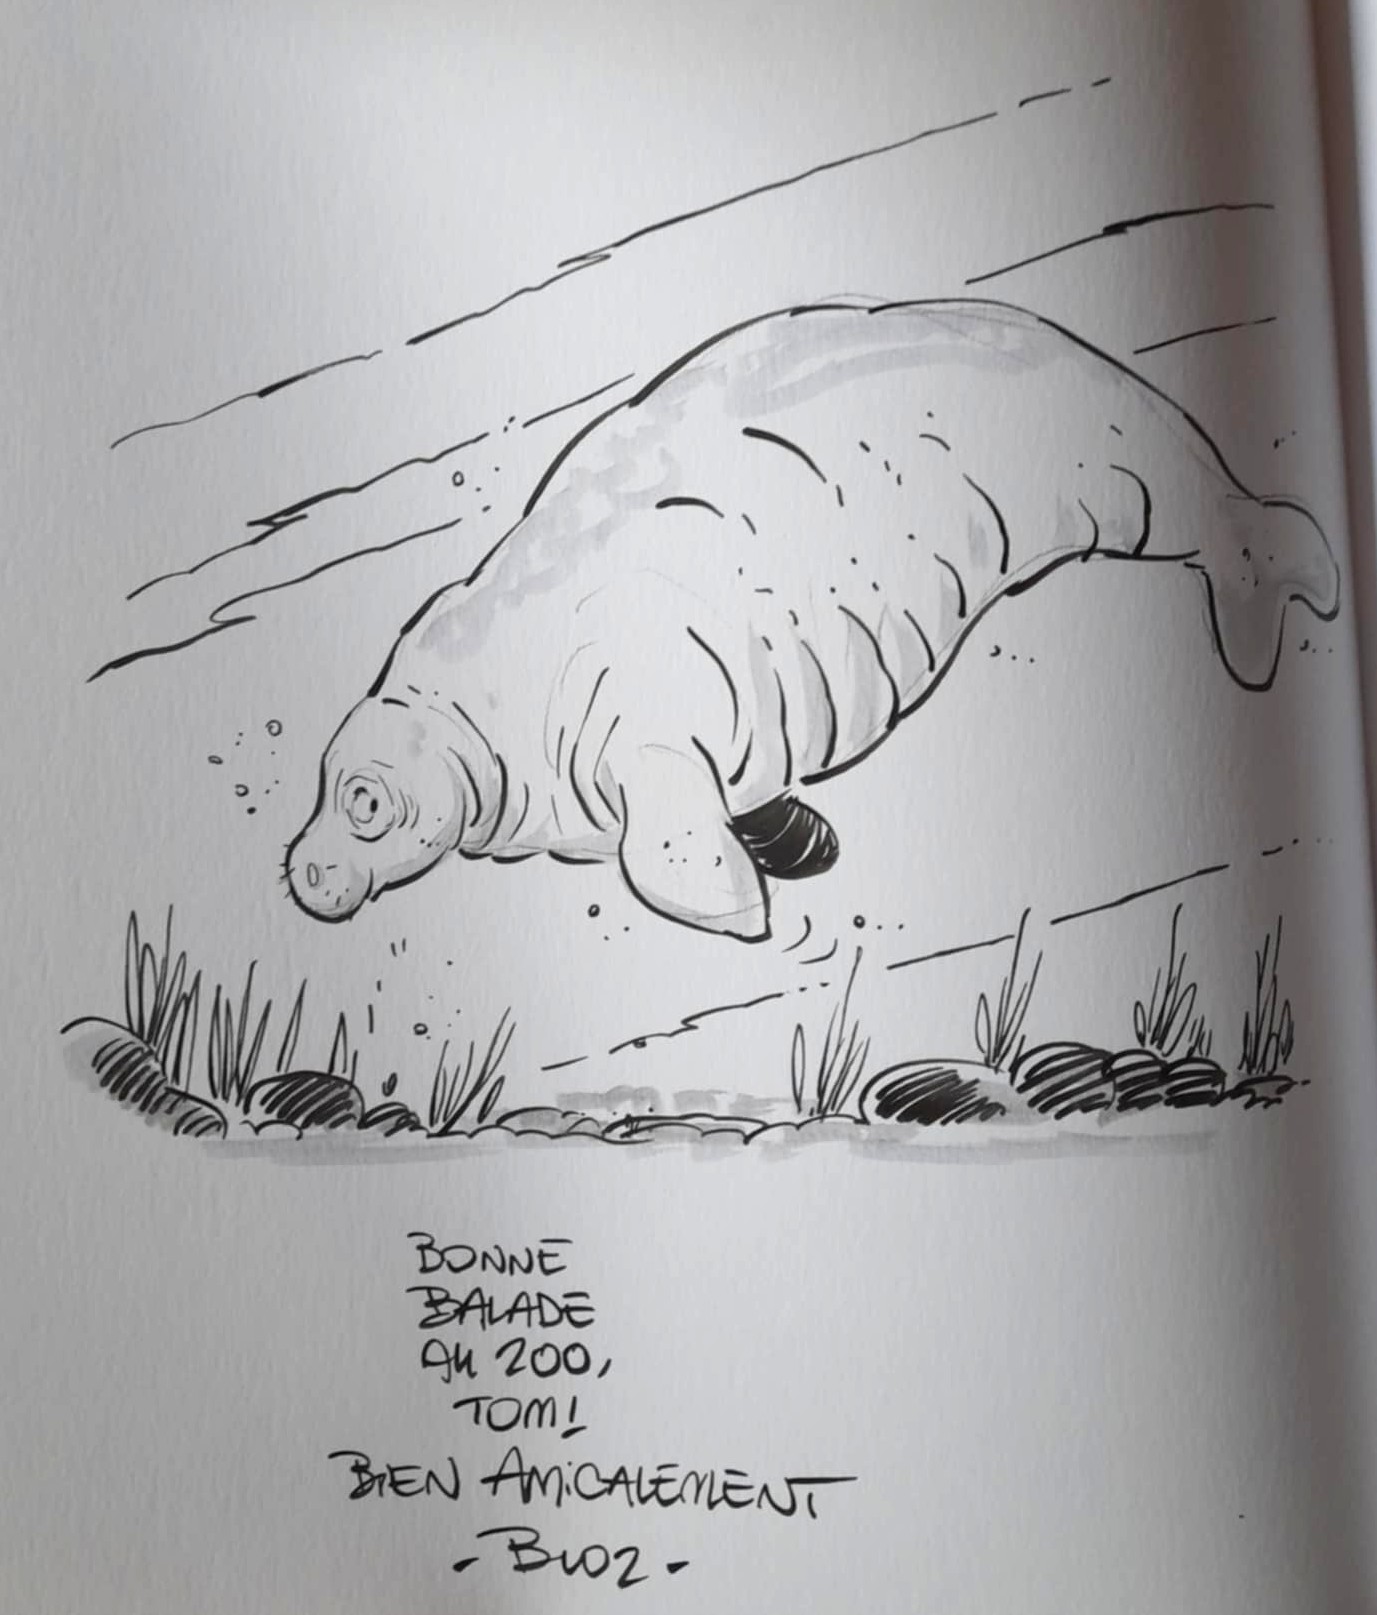 BONNE
BALADE
AU ZOO,
TOM!
BIEN AMICALEMENT
- BLOZ -